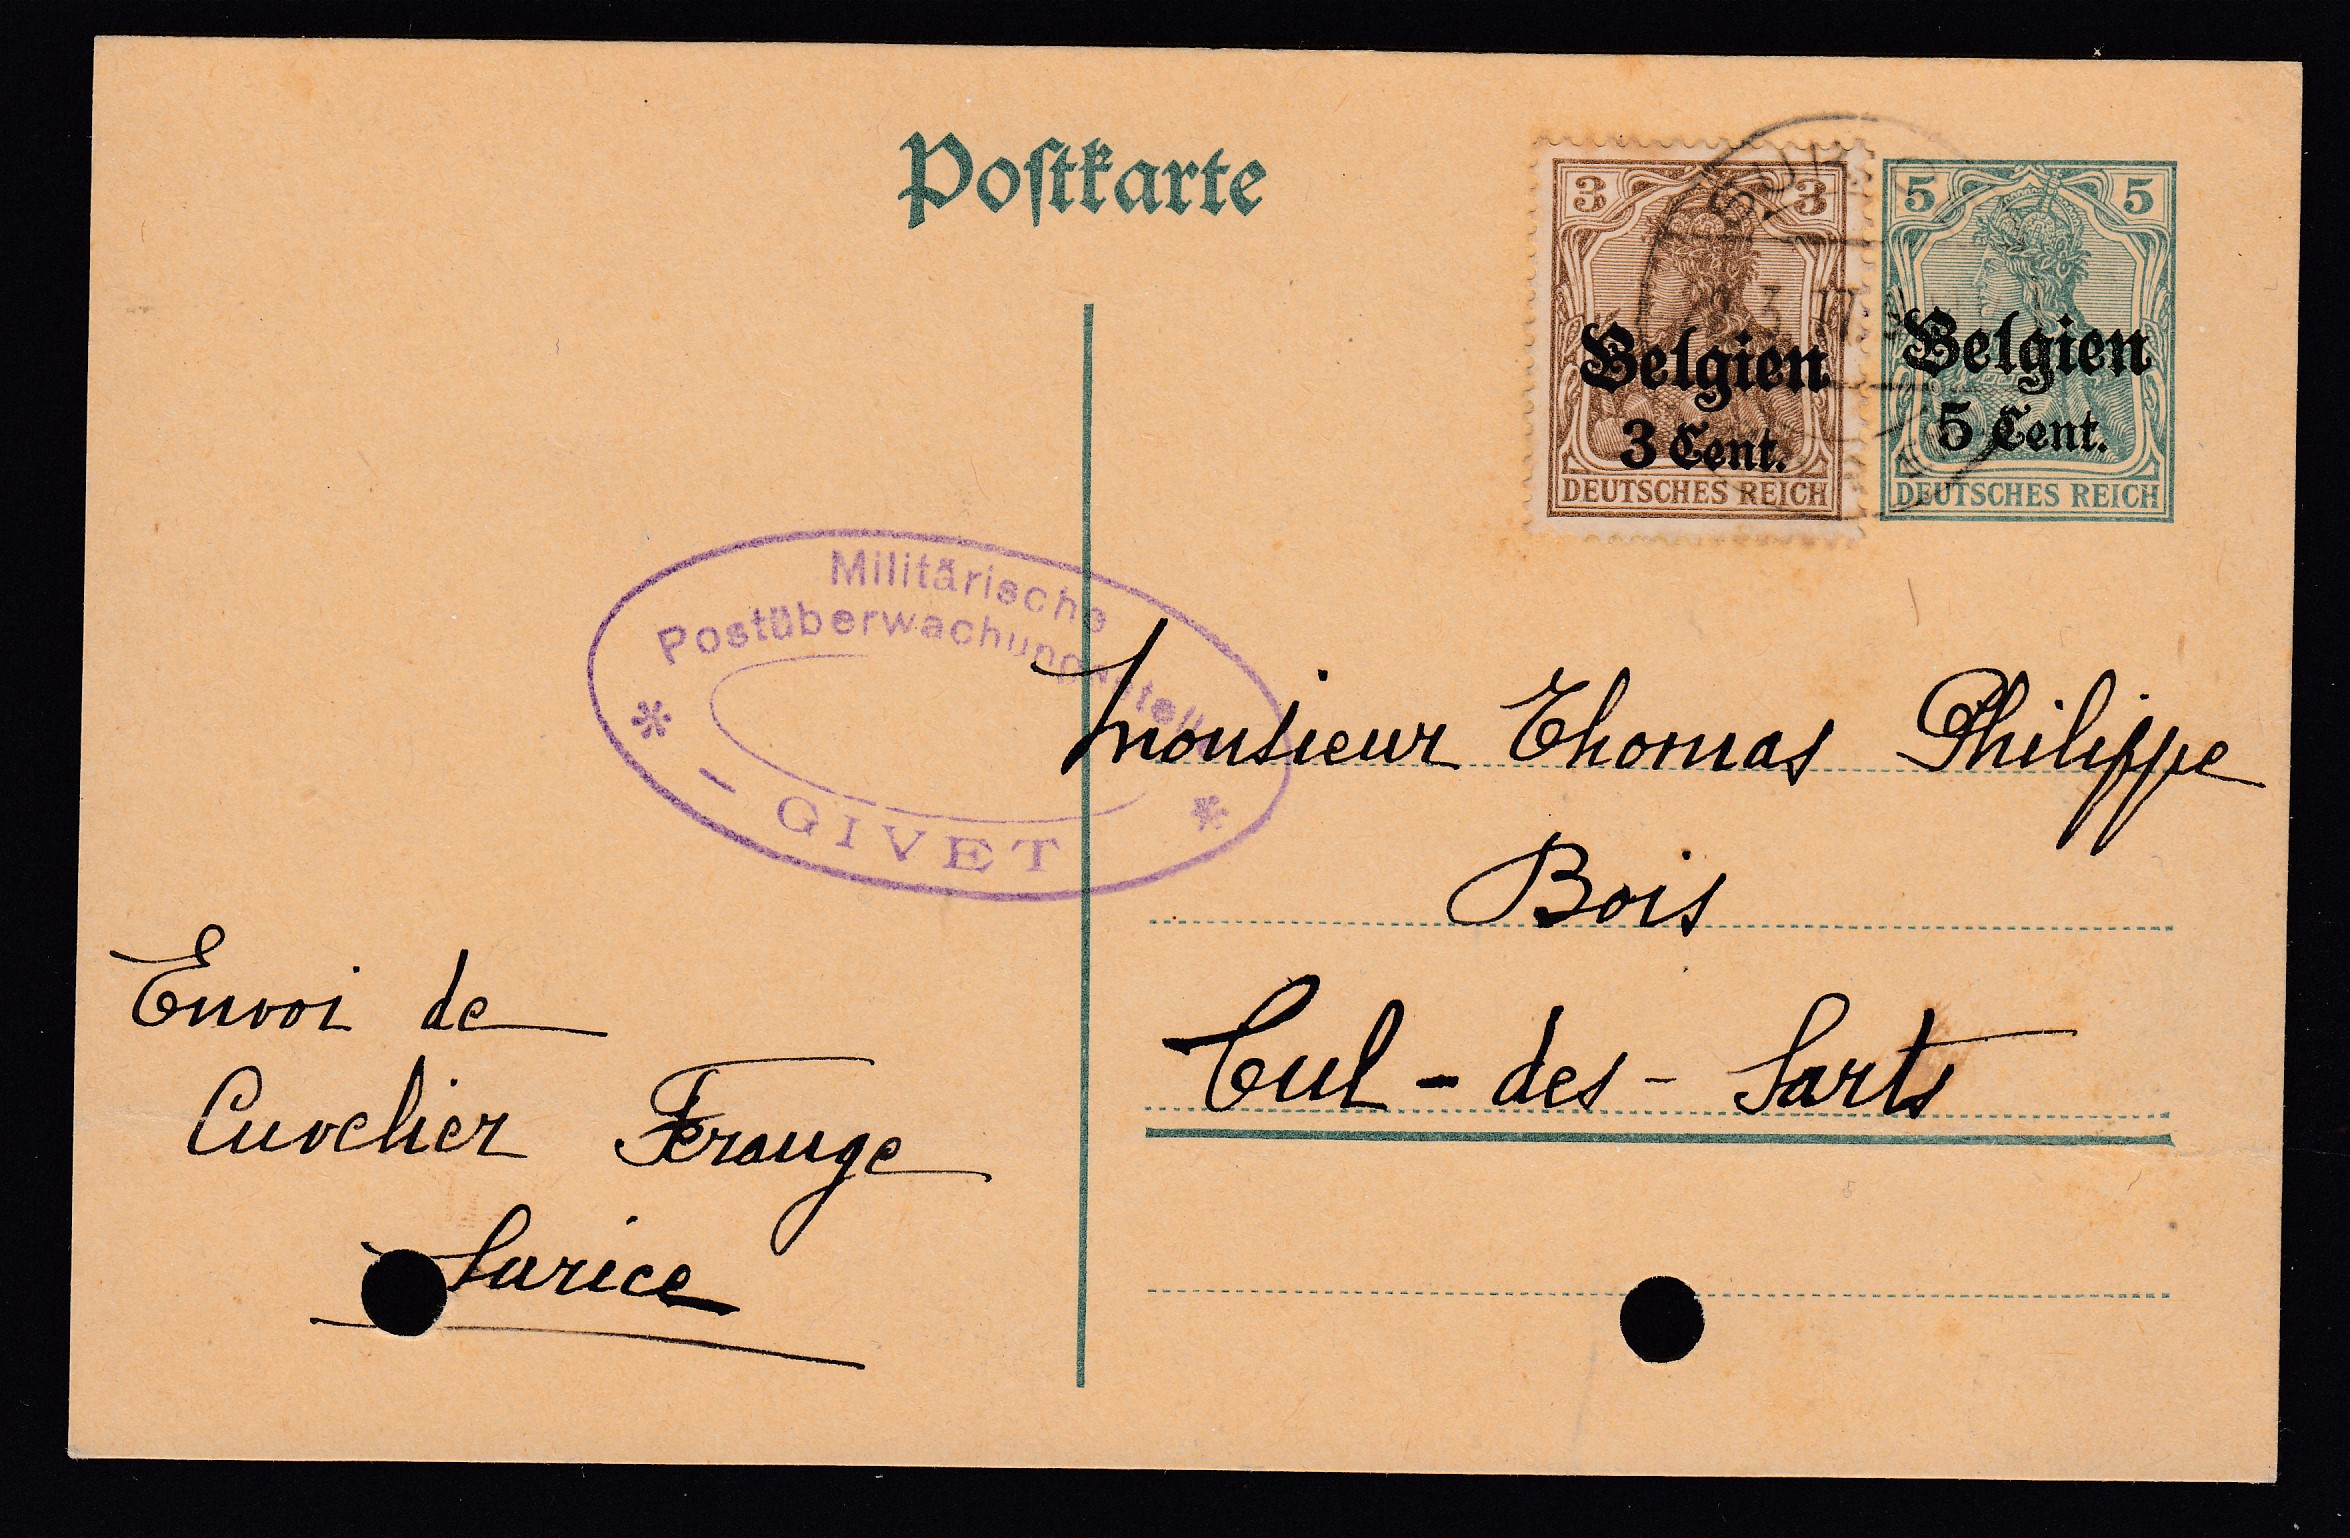 Postkarte
3 3
Belgien
3 Cent.
DEUTSCHES REICH
5 5
Belgien
5 Cent.
DEUTSCHES REICH
3. 17
Militärische
Postüberwachungsstelle
* *
- GIVET
Monsieur Thomas Philippe
Bois
Cul-des-Sarts
Envoi de
Cuvelier Ferauge
Surice